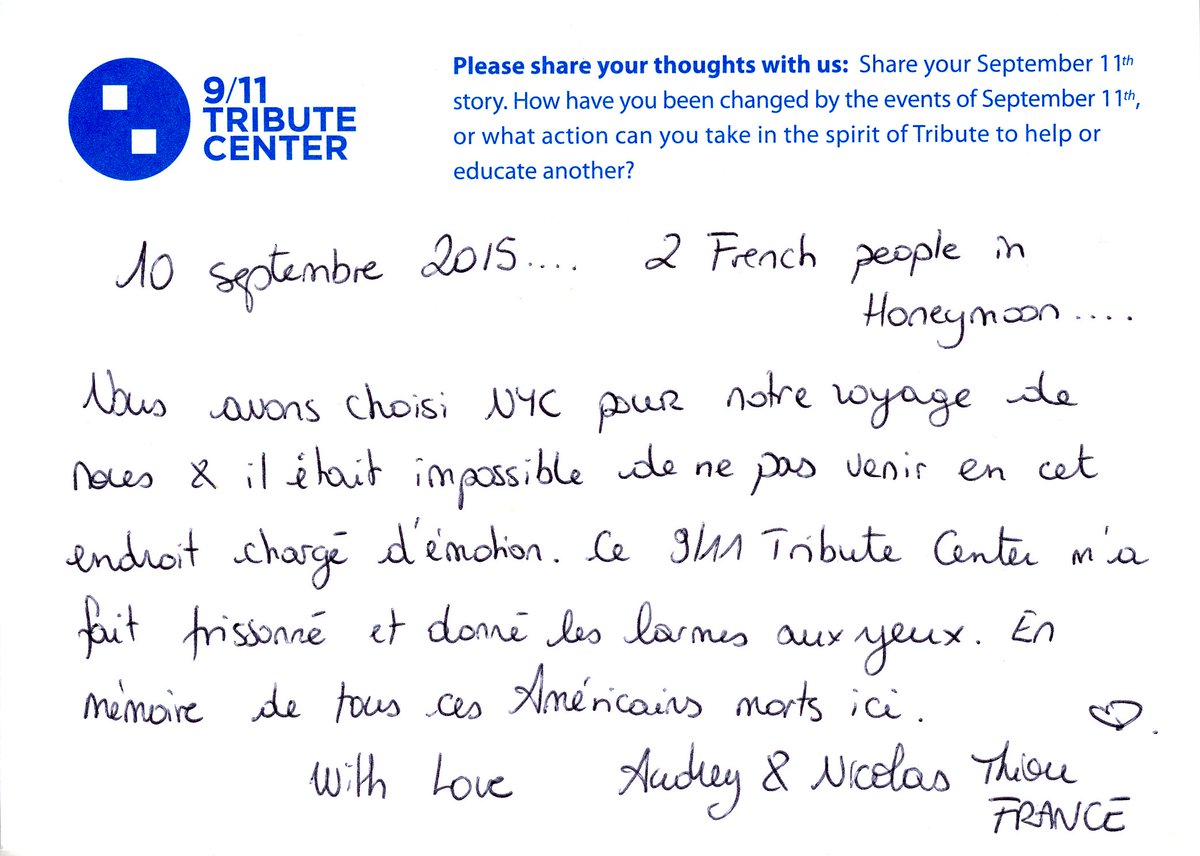 9/11
TRIBUTE
CENTER
Please share your thoughts with us: Share your September 11th
story. How have you been changed by the events of September 11th,
or what action can you take in the spirit of Tribute to help or
educate another?
10 septembre 2015.... 2 French people in
Honeymoon....
Nous avons choisi NYC pour notre voyage de
noces & il était impossible de ne pas venir en cet
endroit chargé d'émotion. Ce 9/11 Tribute Center m'a
fait frissonné et donné les larmes aux yeux. En
mémoire de tous ces Américains morts ici.
With Love Audrey & Nicolas
FRANCE